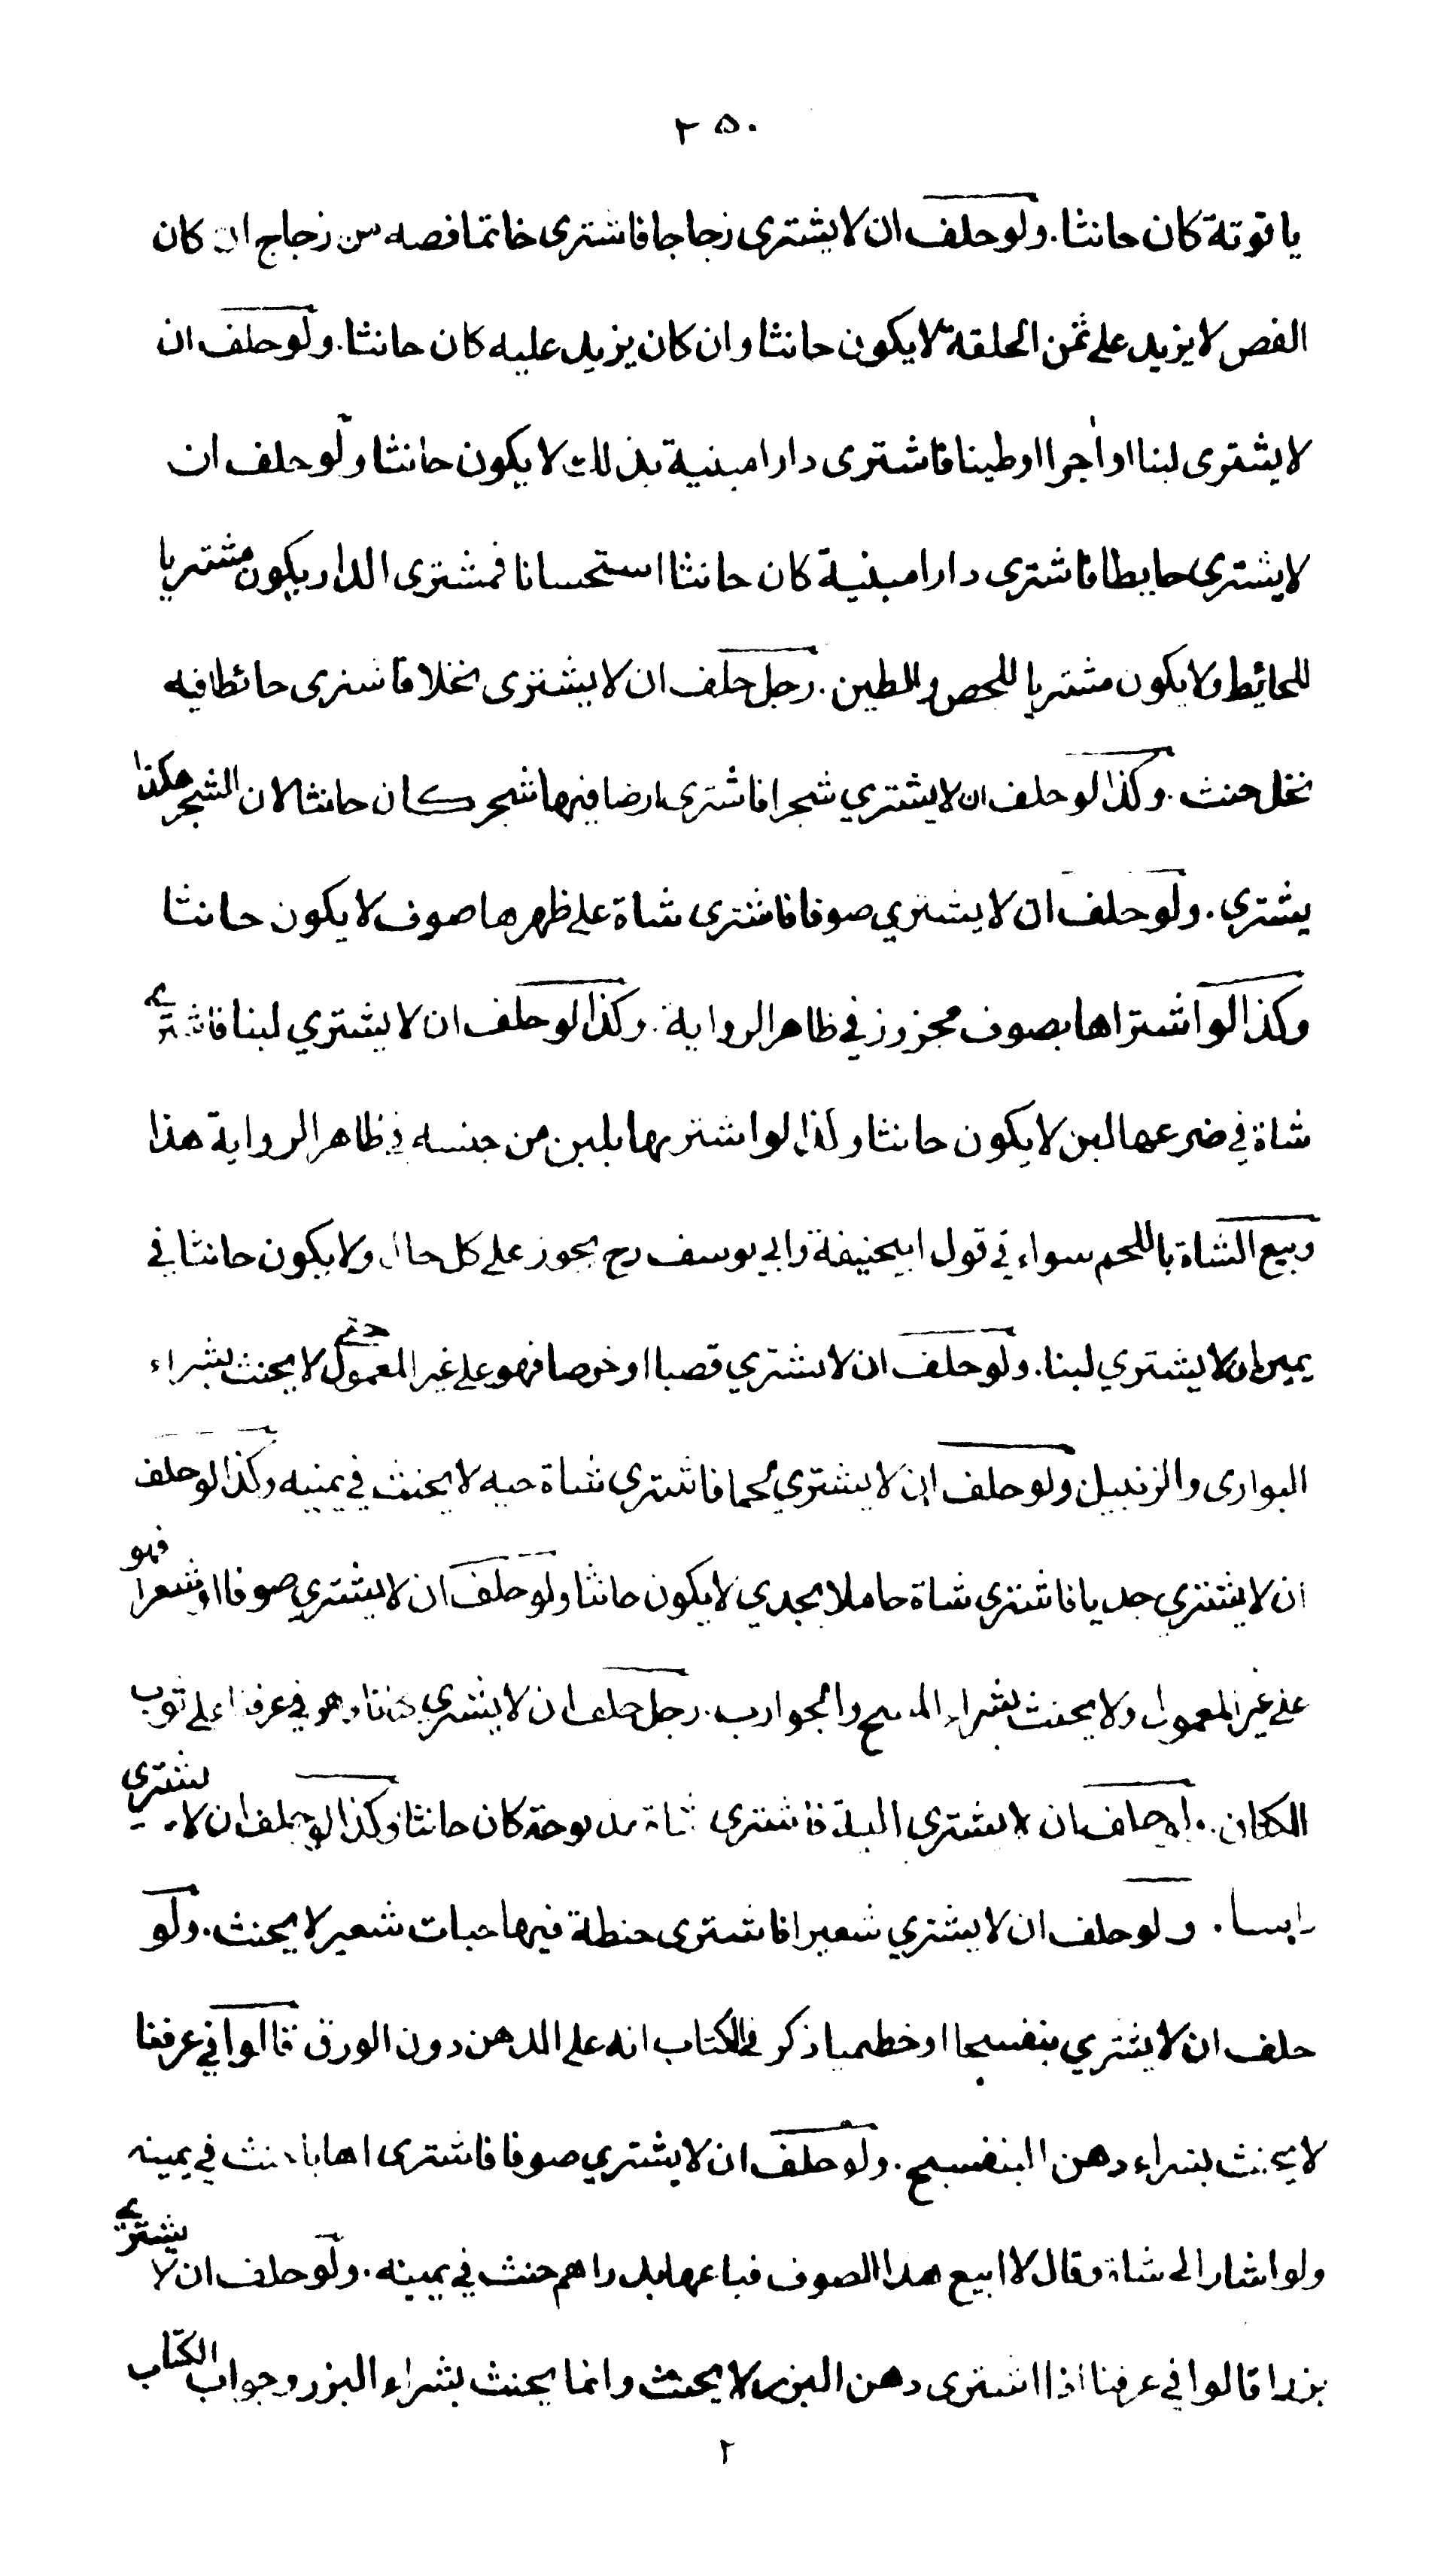 ٢٥٠
ياقوتة كان حانثا. ولو حلف ان لا يشترى زجاجا فاشترى خاتما فصه من زجاج ان كان
الفص لا يزيد على ثمن الحلقة لا يكون حانثا وان كان يزيد عليه كان حانثا. ولو حلف ان
لا يشترى لبنا او اجرا او طينا فاشترى دارا مبنية بذلك لا يكون حانثا ولو حلف ان
لا يشترى حايطا فاشترى دارا مبنية كان حانثا استحسانا فمشترى الدار يكون مشتريا
للحائيط ولا يكون مشتريا للجص والطين. رجل حلف ان لا يشترى نخلا فاشترى حائطا فيه
نخل حنث. وكذا لو حلف ان لا يشتري شجرا فاشترى ارضا فيها شجر كان حانثا لان الشجر هكذا
يشترى. ولو حلف ان لا يشتري صوفا فاشترى شاة على ظهرها صوف لا يكون حانثا
وكذا لو اشتراها بصوف مجزوز في ظاهر الرواية. وكذا لو حلف ان لا يشتري لبنا فاشترى
شاة في ضرعها لبن لا يكون حانثا وكذا لو اشتريها بلبن من جنسه في ظاهر الرواية هذا
وبيع الشاة باللحم سواء في قول ابيحنيفة وابي يوسف رح يجوز على كل حال ولا يكون حانثا في
يمين ان لا يشتري لبنا. ولو حلف ان لا يشتري قصبا او خوصا فهو على غير المعمول حتى لا يحنث بشراء
البوارى والزنبيل ولو حلف ان لا يشتري لحما فاشترى شاة حية لا يحنث في يمينه وكذا لو حلف
ان لا يشترى جديا فاشترى شاة حاملا بجدي لا يكون حانثا ولو حلف ان لا يشتري صوفا او شعرا فهو
على غير المعمول ولا يحنث بشراء المسح والجوارب. رجل حلف ان لا يشتري كتانا وهو في عرفنا على ثوب
الكتان. ولو حلف ان لا يشترى الية فاشترى شاة مذبوحة كان حانثا وكذا لو حلف ان لا يشترى
رابسا. ولو حلف ان لا يشتري شعيرا فاشترى حنطة فيها حبات شعير لا يحنث. ولو
حلف ان لا يشتري بنفسجا او خطميا ذكر في الكتاب انه على الدهن دون الورق قالوا في عرفنا
لا يحنث بشراء دهن البنفسج. ولو حلف ان لا يشتري صوفا فاشترى اهابا حنث في يمينه
ولو اشار الى شاة وقال لا ابيع هذا الصوف فباعها بدراهم حنث في يمينه. ولو حلف ان لا يشترى
بزرا قالوا في عرفنا اذا اشترى دهن البزر لا يحنث وانما يحنث بشراء البزر وجواب الكتاب
٢